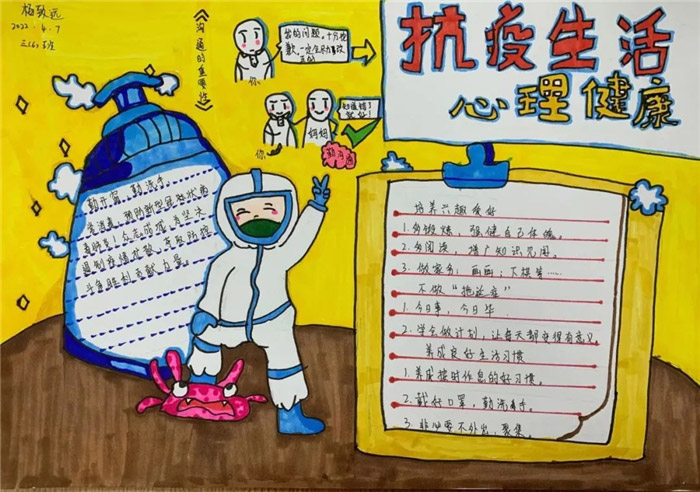 杨致远
2022.4.7
三(6)班
《沟通的重要性》
你
你
妈妈
知道错了
抗疫生活
心理健康
勤开窗 勤洗手
常消毒,预防新型冠状病
毒肺炎!众志成城,为坚决
遏制疫情扩散,夺取防控
斗争胜利贡献力量。
培养兴趣爱好
1.多锻炼,强健自己体魄。
2.多阅读,增广知识见闻。
3.做家务;画画;下棋等……
不做“拖延症”
1.今日事,今日毕
2.学会做计划,让每天都变得有意义。
养成良好生活习惯
1.养成按时作息的好习惯。
2.戴好口罩,勤洗手。
3.非必要不外出,聚集。